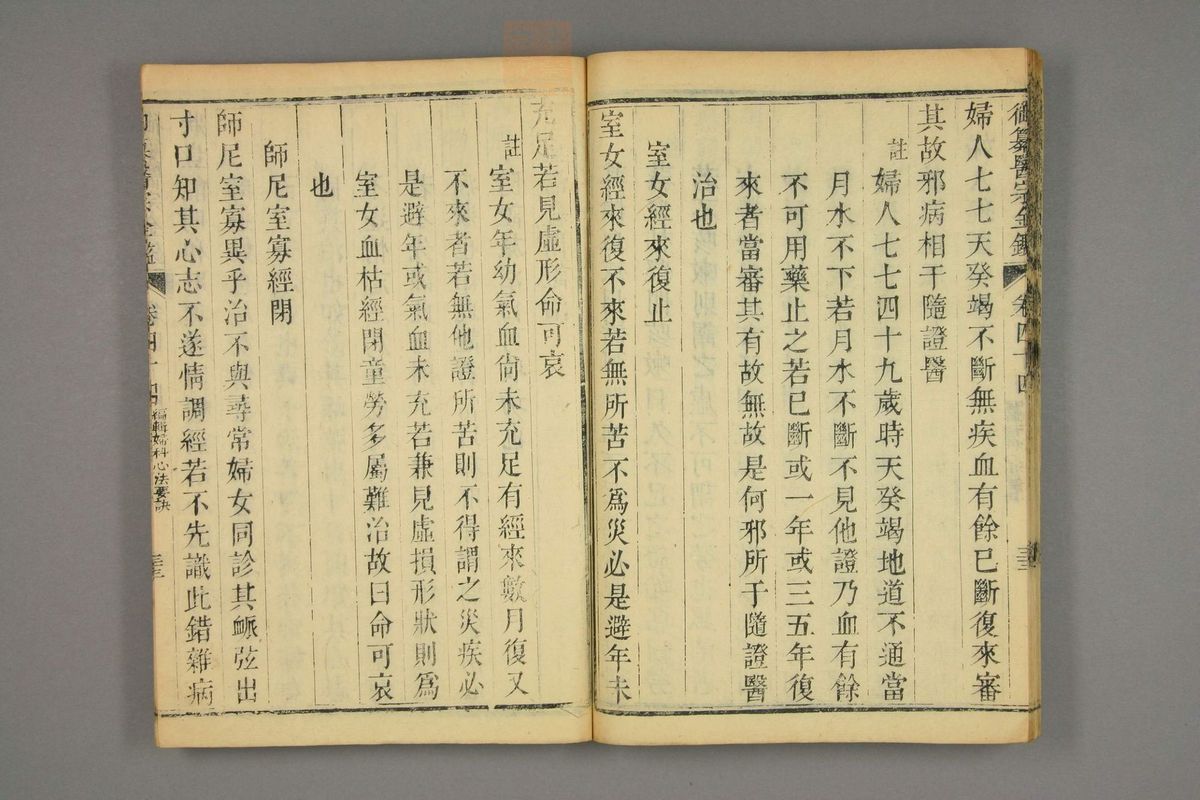 御纂醫宗金鑑 卷四十四 三三
婦人七七天癸竭不斷無疾血有餘已斷復來審
其故邪病相干隨證醫
註婦人七七四十九歲時天癸竭地道不通當
月水不下若月水不斷不見他證乃血有餘
不可用藥止之若已斷或一年或三五年復
來者當審其有故無故是何邪所干隨證醫
治也
室女經來復止
室女經來復不來若無所苦不爲災必是避年未
充足若見虛形命可哀
註室女年幼氣血尙未充足有經來數月復又
不來者若無他證所苦則不得謂之災疾必
是避年或氣血未充若兼見虛損形狀則爲
室女血枯經閉童勞多屬難治故曰命可哀
也
師尼室寡經閉
師尼室寡異乎治不與尋常婦女同診其脈弦出
寸口知其心志不遂情調經若不先識此錯雜病
卷四十四 編輯婦科心法要訣 三三